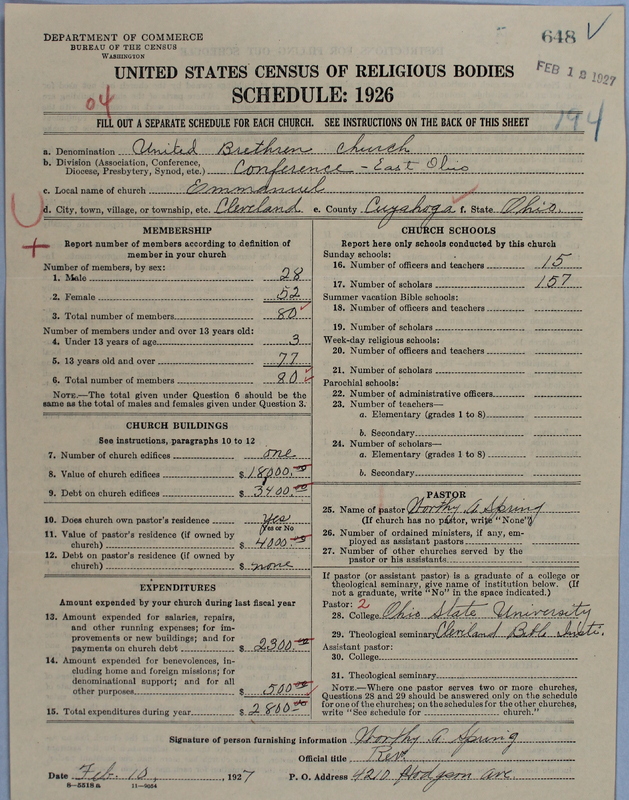 DEPARTMENT OF COMMERCE
BUREAU OF THE CENSUS
WASHINGTON
648
FEB 12 1927
UNITED STATES CENSUS OF RELIGIOUS BODIES
SCHEDULE: 1926
04
FILL OUT A SEPARATE SCHEDULE FOR EACH CHURCH. SEE INSTRUCTIONS ON THE BACK OF THIS SHEET
194
a. Denomination United Brethren Church
b. Division (Association, Conference, Diocese, Presbytery, Synod, etc.) Conference - East Ohio
c. Local name of church Emmanuel
d. City, town, village, or township, etc. Cleveland e. County Cuyahoga f. State Ohio.
MEMBERSHIP
Report number of members according to definition of
member in your church
Number of members, by sex:
1. Male 28
2. Female 52
3. Total number of members 80
Number of members under and over 13 years old:
4. Under 13 years of age 3
5. 13 years old and over 77
6. Total number of members 80
NOTE.—The total given under Question 6 should be
same as the total of males and females given under Question 3.
CHURCH BUILDINGS
See instructions, paragraphs 10 to 12
7. Number of church edifices one
8. Value of church edifices $ 18000.00
9. Debt on church edifices $ 3400.00
10. Does church own pastor's residence Yes
Yes or No
11. Value of pastor's residence (if owned by
church) $ 4000.00
12. Debt on pastor's residence (if owned by
church) $ none
EXPENDITURES
Amount expended by your church during last fiscal year
13. Amount expended for salaries, repairs,
and other running expenses; for im-
provements or new buildings; and for
payments on church debt $ 2300.00
14. Amount expended for benevolences, in-
cluding home and foreign missions; for
denominational support; and for all
other purposes $ 500.00
15. Total expenditures during year $ 2800.00
CHURCH SCHOOLS
Report here only schools conducted by this church
Sunday schools:
16. Number of officers and teachers 15
17. Number of scholars 157
Summer vacation Bible schools:
18. Number of officers and teachers
19. Number of scholars
Week-day religious schools:
20. Number of officers and teachers
21. Number of scholars
Parochial schools:
22. Number of administrative officers
23. Number of teachers—
a. Elementary (grades 1 to 8)
b. Secondary
24. Number of scholars—
a. Elementary (grades 1 to 8)
b. Secondary
PASTOR
25. Name of pastor Worthy A. Spring
(If church has no pastor, write "None")
26. Number of ordained ministers, if any, em-
ployed as assistant pastors
27. Number of other churches served by the
pastor or his assistants
If pastor (or assistant pastor) is a graduate of a college or
theological seminary, give name of institution below. (If
not a graduate, write "No" in the space indicated.)
Pastor: 2
28. College Ohio State University
29. Theological seminary Cleveland Bible Insti.
Assistant pastor:
30. College
31. Theological seminary
NOTE.—Where one pastor serves two or more churches,
Questions 28 and 29 should be answered only on the schedule
for one of the churches; on the schedules for the other churches,
write "See schedule for church."
Signature of person furnishing information Worthy A. Spring
Official title Rev.
Date Feb. 10, 1927 P. O. Address 4210 Hodgson Ave
8-5518 a 11-9064